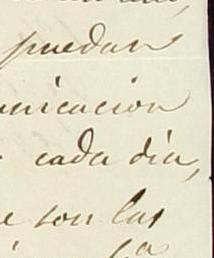 puedan
unicacion
cada dia,
e son las